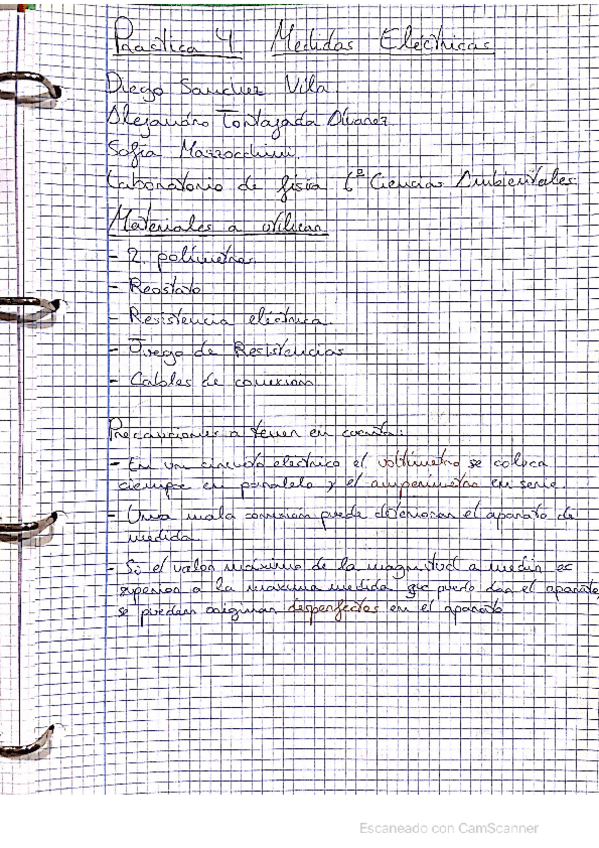 Práctica 4. Medidas Eléctricas
Diego Sanchez Vila
Alejandro Tortajada Olivares
Sofía Mazzocchini.
Laboratorio de física 6º Ciencias Ambientales
Materiales a utilizar
- 2 polímetros
- Reostato
- Resistencia eléctrica.
- Juego de Resistencias
- Cables de conexión
Precauciones a tener en cuenta:
- En un circuito eléctrico el voltímetro se coloca
siempre en paralelo y el amperímetro en serie.
- Una mala conexión puede deteriorar el aparato de
medida.
- Si el valor máximo de la magnitud a medir es
superior a la máxima medida que puede dar el aparato,
se pueden originar desperfectos en el aparato
Escaneado con CamScanner